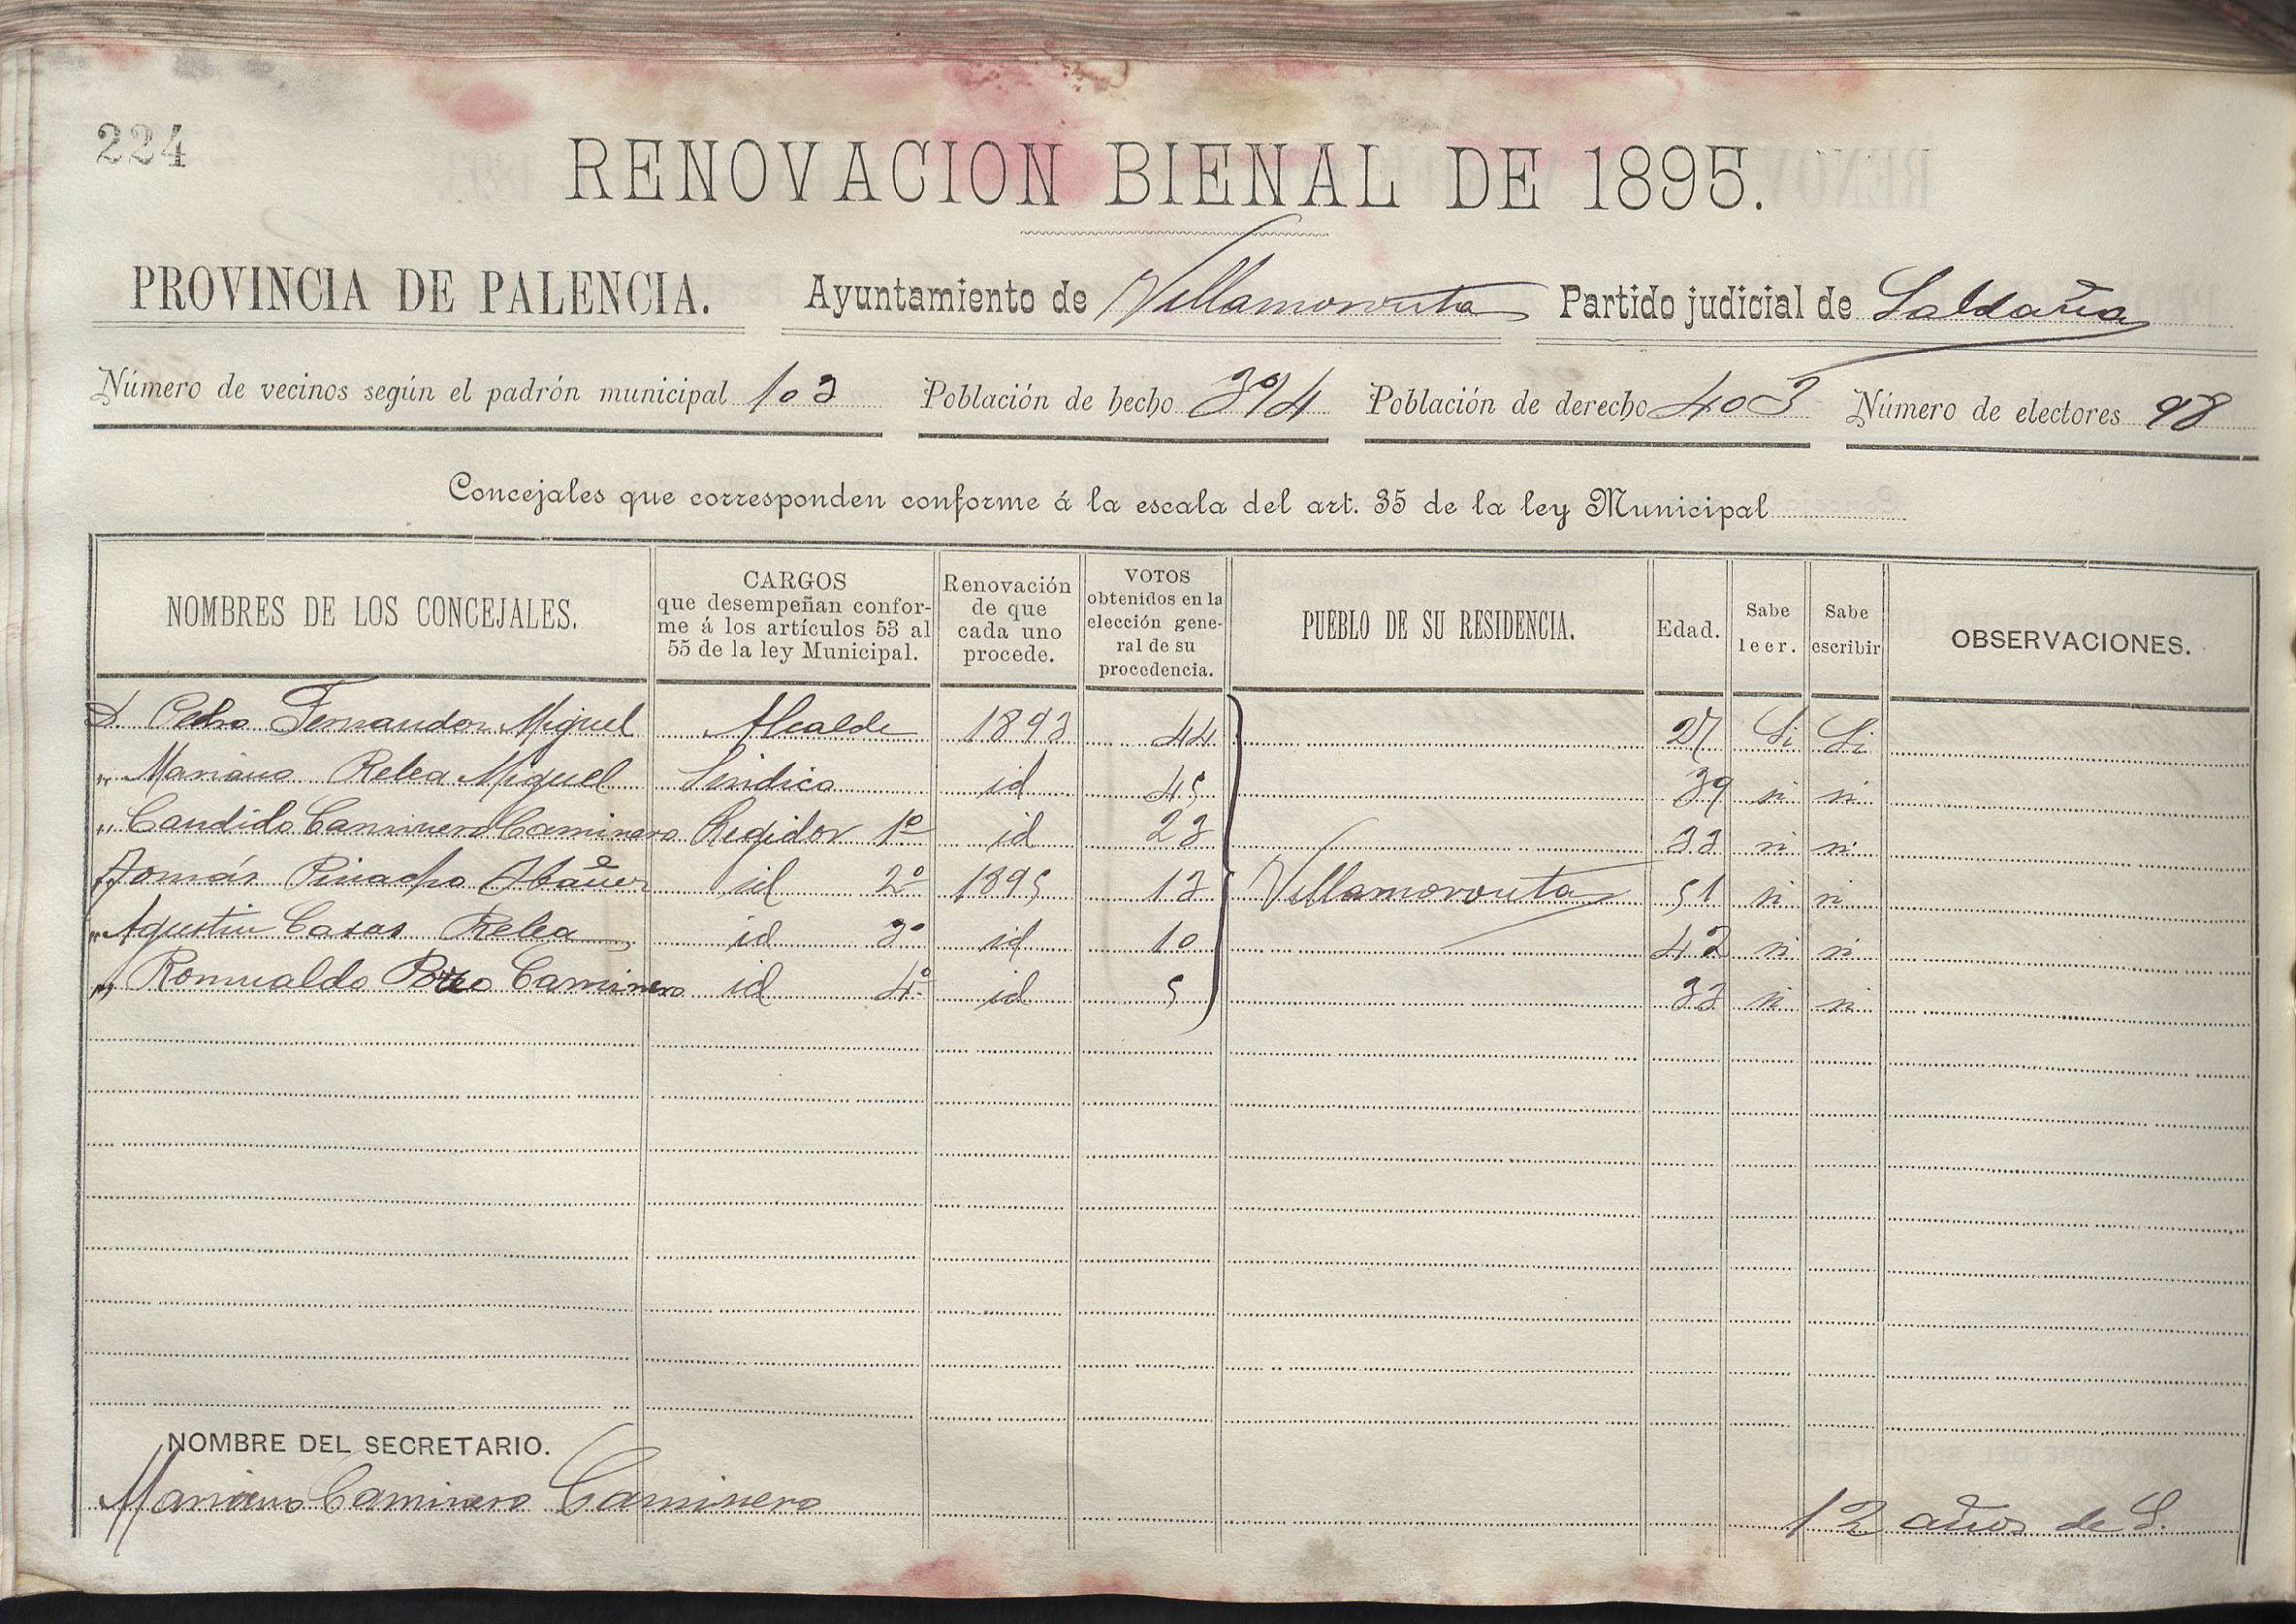 224
RENOVACION BIENAL DE 1895.
PROVINCIA DE PALENCIA. Ayuntamiento de Villamoronta Partido judicial de Saldaña
Número de vecinos según el padrón municipal 103 Población de hecho 394 Población de derecho 403 Número de electores 98
Concejales que corresponden conforme á la escala del art. 35 de la ley Municipal
NOMBRES DE LOS CONCEJALES.
CARGOS
que desempeñan confor-
me á los artículos 53 al
55 de la ley Municipal.
Renovación
de que
cada uno
procede.
VOTOS
obtenidos en la
elección gene-
ral de su
procedencia.
PUEBLO DE SU RESIDENCIA.
Edad.
Sabe
leer.
Sabe
escribir
OBSERVACIONES.
D. Pedro Fernandez Miguel Alcalde 1893 44 27 Si Si
" Mariano Relea Miguel Sindico id 45 39 si si
" Candido Caminero Caminero Regidor 1º id 23 33 si si
Tomás Pinacho Ibañez id 2º 1895 13 Villamoronta 51 si si
" Agustin Casas Relea id 3º id 10 42 si si
" Romualdo Caminero id 4º id 5 33 si si
NOMBRE DEL SECRETARIO.
Mariano Caminero Caminero 12 años de S.